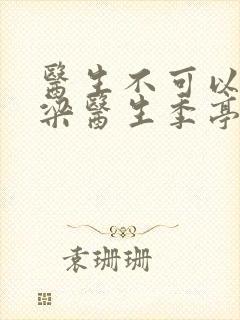 醫生不可以
梁醫生季亭
袁珊珊